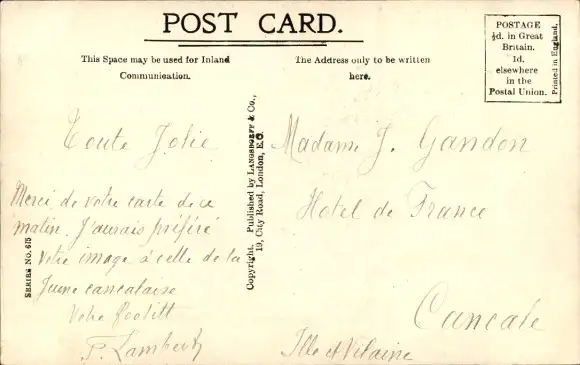 POST CARD.
This Space may be used for Inland
Communication.
The Address only to be written
here.
POSTAGE
½d. in Great
Britain.
1d.
elsewhere
in the
Postal Union.
Printed in England.
Toute Jolie
Merci de votre carte de ce
matin. J'aurais préféré
votre image à celle de la
Jeune cancalaise
Votre
P. Lambert
SERIES No. 615
Copyright. Published by LANGSDORFF & Co.,
19, City Road, London, E.C.
Madame J. Gandon
Hotel de France
Cancale
Ille et Vilaine